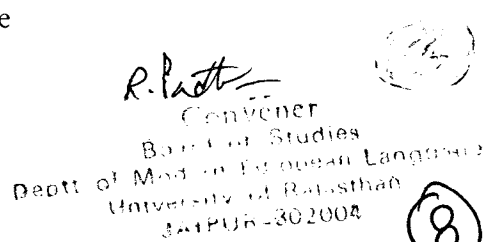 e
Convener
Board of Studies
Deptt of Modern European Languages
University of Rajasthan
JAIPUR-302004
8